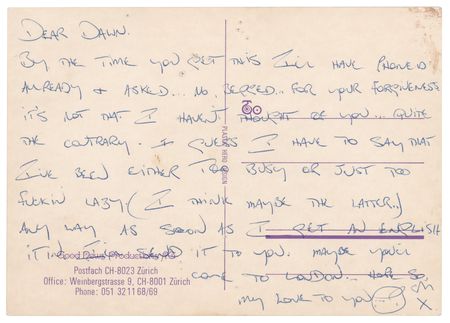 DEAR DAWN.
BY THE TIME YOU GET THIS I'LL HAVE PHONED
ALREADY & ASKED... NO, BEGGED.. FOR YOUR FORGIVENESS
IT'S NOT THAT I HAVEN'T THOUGHT OF YOU... QUITE
THE CONTRARY. I GUESS I HAVE TO SAY THAT
I'VE BEEN EITHER TOO BUSY OR JUST TOO
FUCKIN LAZY. (I THINK MAYBE THE LATTER..)
ANY WAY AS SOON AS I GET AN ENGLISH
SEND IT TO YOU. MAYBE YOU'LL
COME TO LONDON... HOPE SO.
MY LOVE TO YOU...
X
PLASTIC HERO DESIGN
Good News Productions AG
Postfach CH-8023 Zürich
Office: Weinbergstrasse 9, CH-8001 Zürich
Phone: 051 32 11 68/69